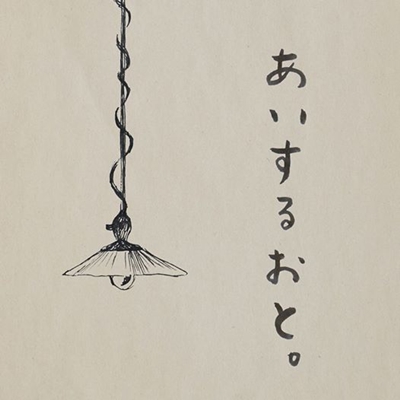 あいするおと。